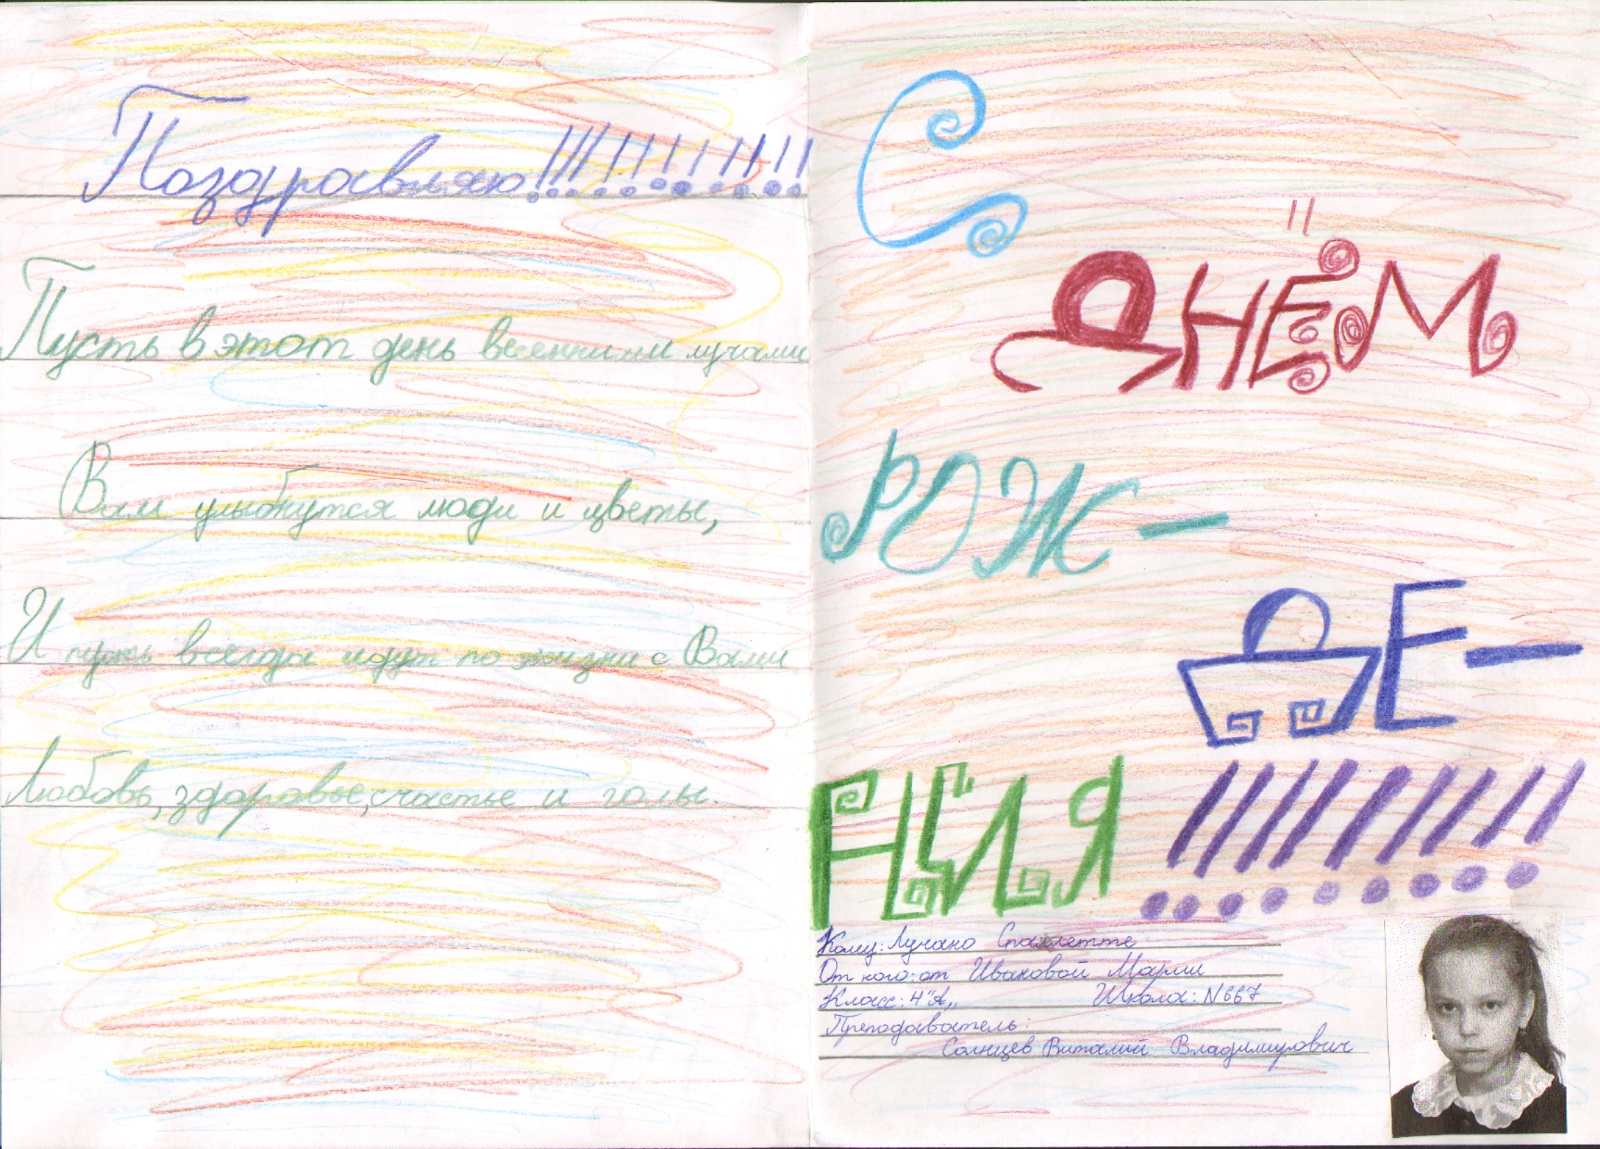 Поздравляю!!!!!!!!!!!
Пусть в этот день весенними лучами
Вам улыбнутся люди и цветы,
И пусть всегда идут по жизни с Вами
Любовь, здоровье, счастье и голы.
С
ДНЁМ
РОЖ-
ДЕ-
НИЯ!!!!!!!!!
Кому: Лучано Спаллетте
От кого: от Ивановой Марии
Класс: 4"А„ Школа: N667
Преподаватель:
Солнцев Виталий Владимирович